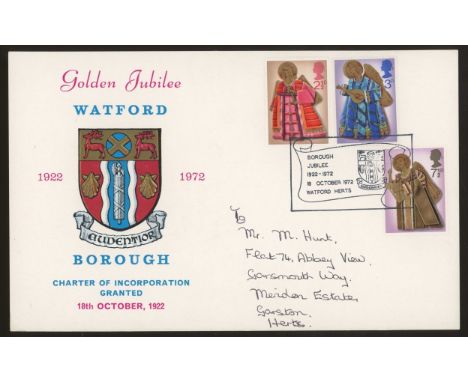 Golden Jubilee
WATFORD
1922 1972
AUDENTIOR
BOROUGH
CHARTER OF INCORPORATION
GRANTED
18th OCTOBER, 1922
2½
3P
7½
BOROUGH
JUBILEE
1922-1972
18 OCTOBER 1972
WATFORD HERTS
To
Mr. M. Hunt,
Flat 74, Abbey View,
Garsmouth Way,
Meriden Estate,
Garston,
Herts.